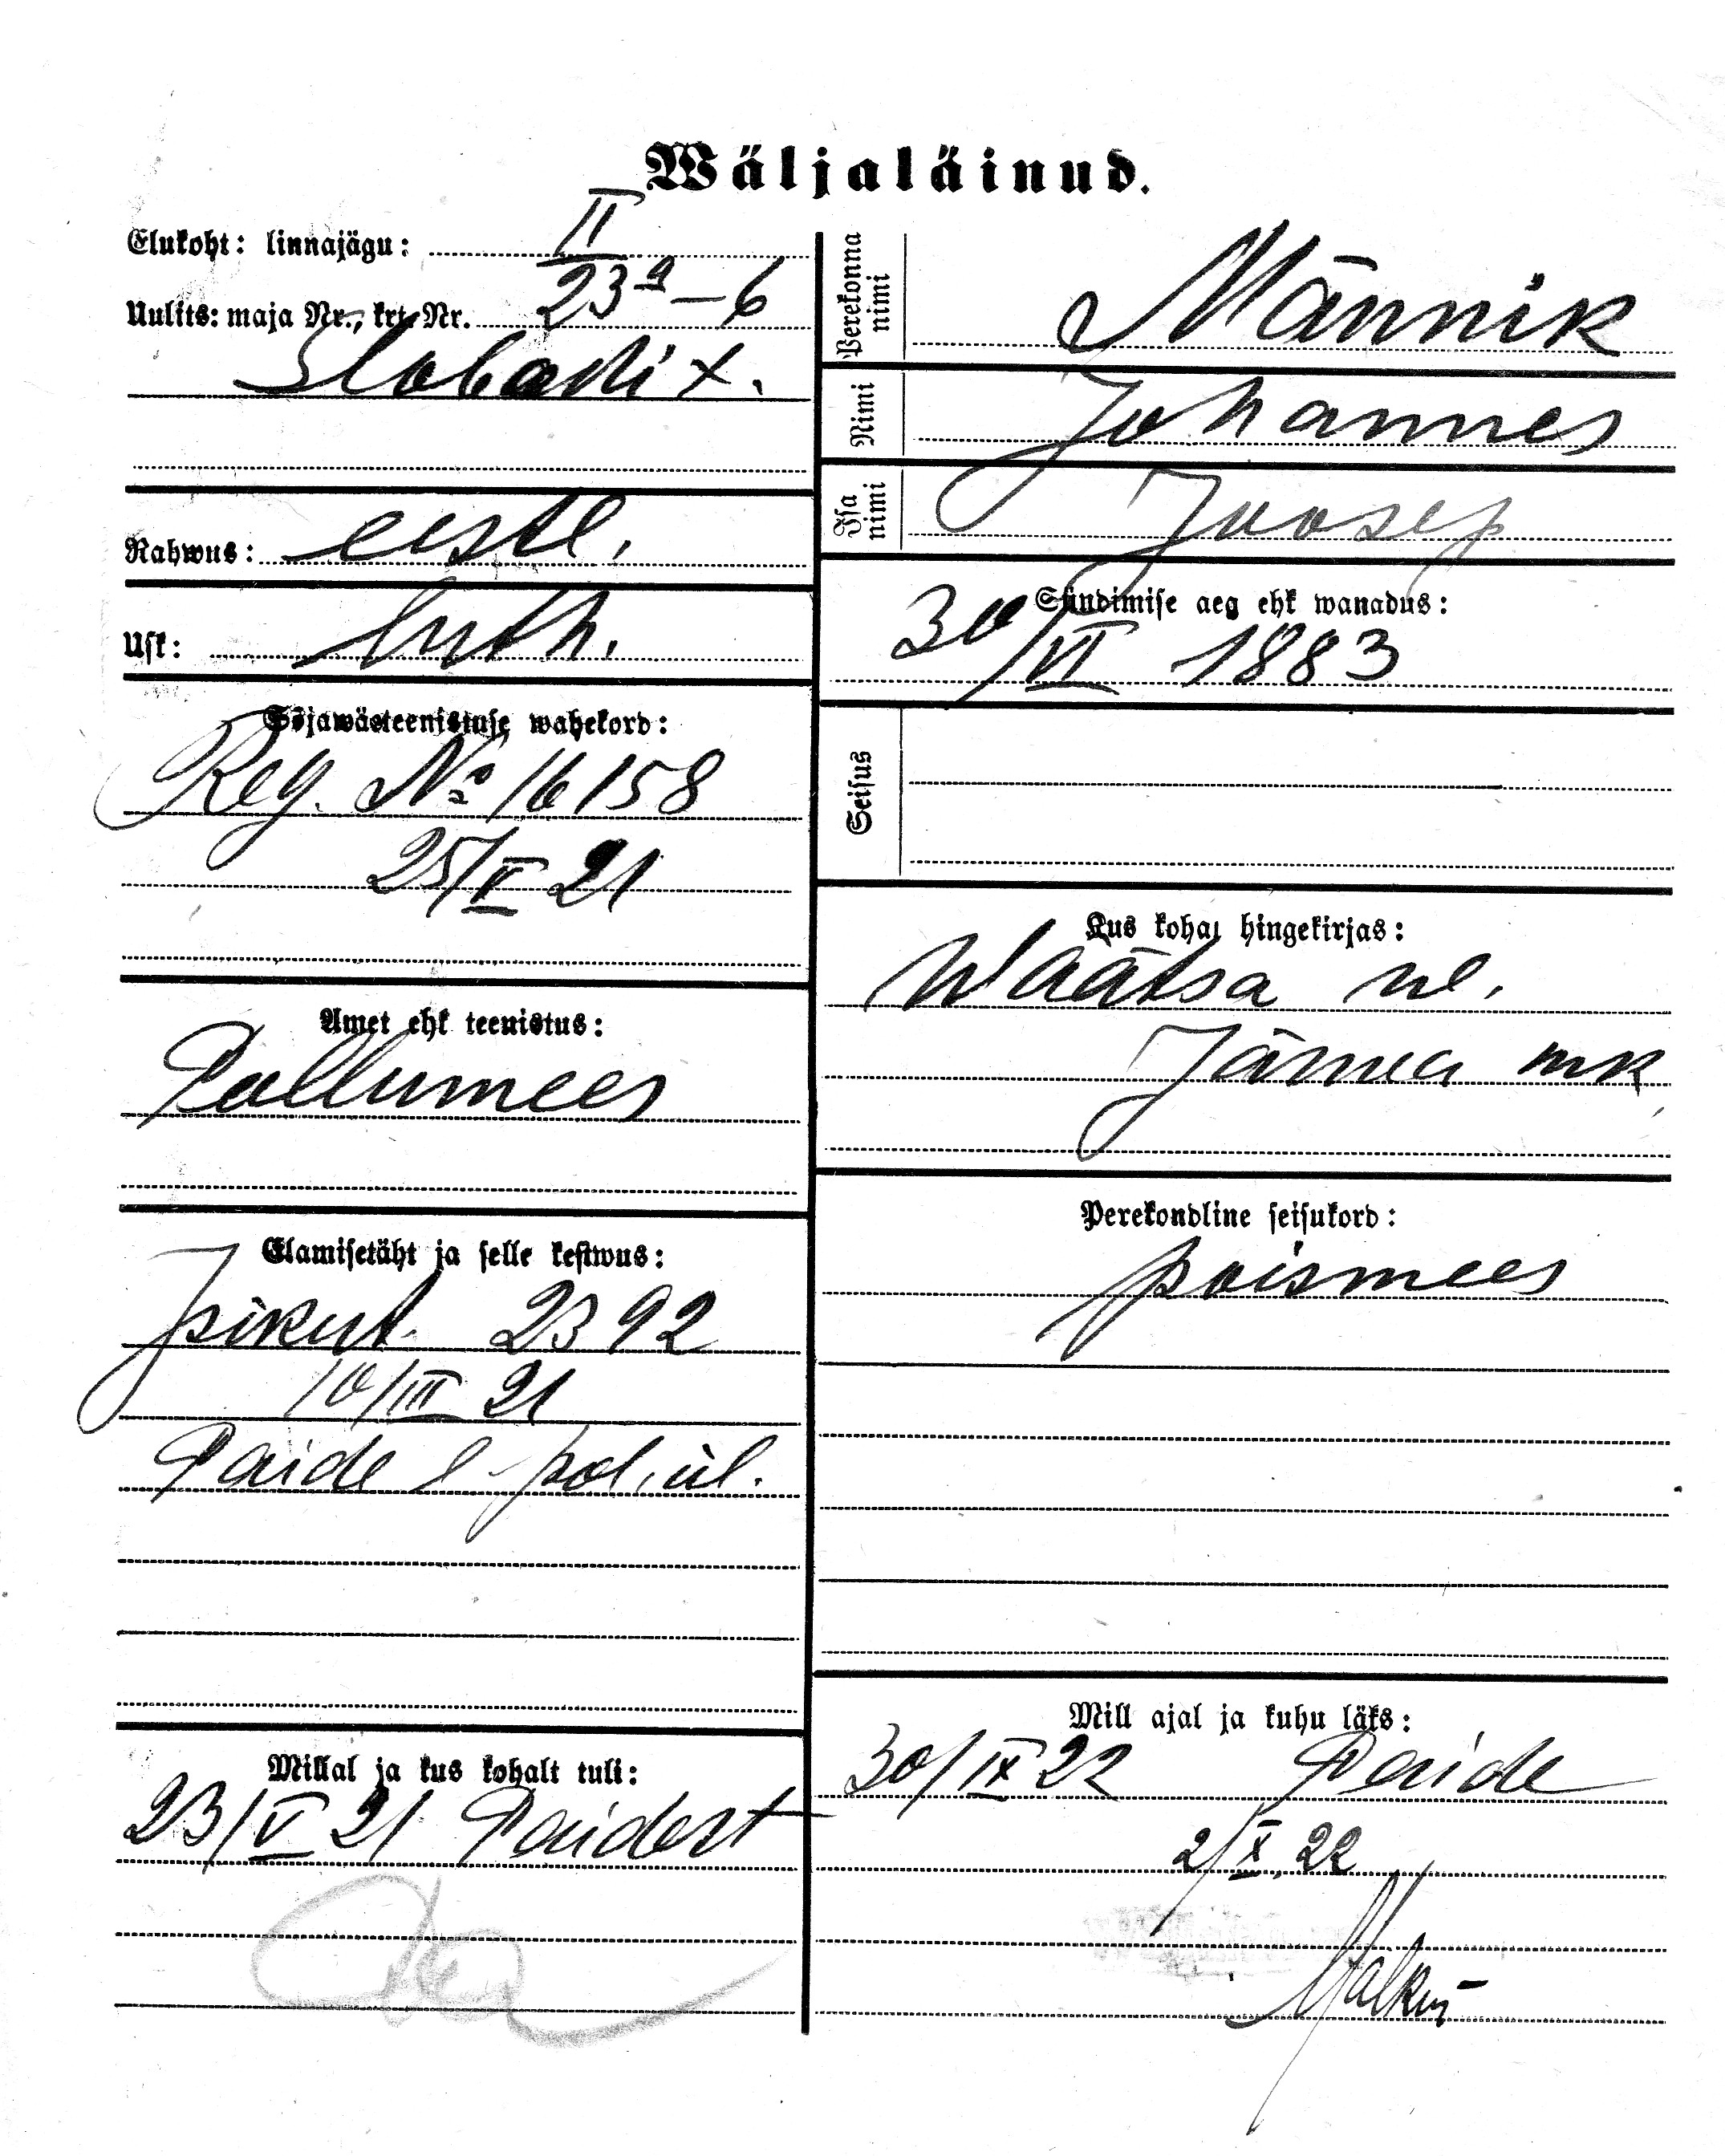 Wäljaläinud.
Elukoht: linnajägu: II
Uulits: maja Nr., krt. Nr. 23a-6
Slobodi t.
Rahwus: eestl.
Usk: luth.
Sõjawäeteenistuse wahekord:
Reg. № 16158
25/V 21
Amet ehk teenistus:
Põllumees
Elamisetäht ja selle kestwus:
Isikut. 2392
10/III 21
Paide l. pol. ül.
Millal ja kus kohalt tuli:
23/V 21 Paidest
Perekonna nimi Männik
Nimi Johannes
Isa nimi Joosep
Sündimise aeg ehk wanadus:
30/VI 1883
Seisus
Kus kohal hingekirjas:
Waätsa w.
Järwa mk
Perekondline seisukord:
poismees
Mill ajal ja kuhu läks:
30/IX 22 Paide
2/X. 22